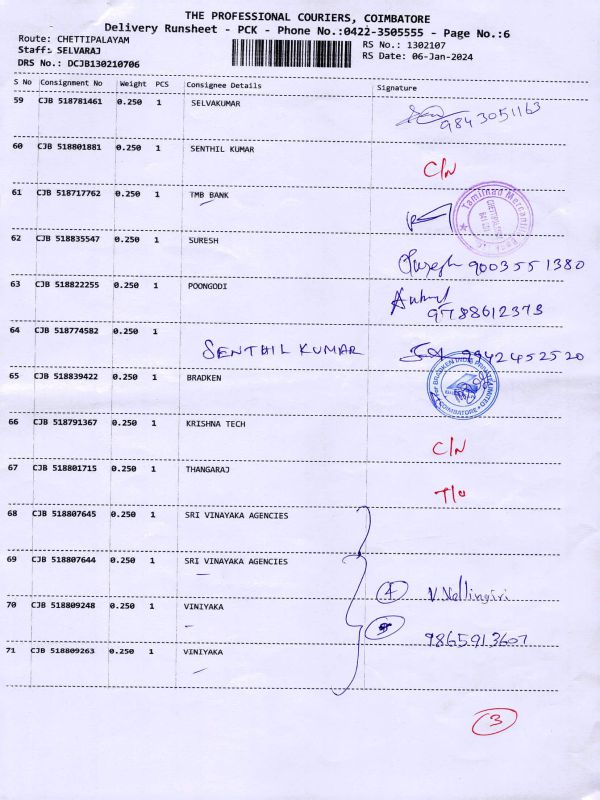 THE PROFESSIONAL COURIERS, COIMBATORE
Delivery Runsheet - PCK - Phone No.:0422-3505555 - Page No.:6
Route: CHETTIPALAYAM RS No.: 1302107
Staff: SELVARAJ RS Date: 06-Jan-2024
DRS No.: DCJB130210706
S No Consignment No Weight PCS Consignee Details Signature
59 CJB 518781461 0.250 1 SELVAKUMAR
9843051163
60 CJB 518801881 0.250 1 SENTHIL KUMAR
C/N
61 CJB 518717762 0.250 1 TMB BANK
Tamilnad Mercantile
62 CJB 518835547 0.250 1 SURESH
Suresh 9003551380
63 CJB 518822255 0.250 1 POONGODI
9788612373
64 CJB 518774582 0.250 1
SENTHIL KUMAR 9942452520
65 CJB 518839422 0.250 1 BRADKEN
For BRADKEN INDIA PRIVATE LIMITED
COIMBATORE
66 CJB 518791367 0.250 1 KRISHNA TECH
C/N
67 CJB 518801715 0.250 1 THANGARAJ
T/O
68 CJB 518807645 0.250 1 SRI VINAYAKA AGENCIES
69 CJB 518807644 0.250 1 SRI VINAYAKA AGENCIES
4 V. Vellingiri
70 CJB 518809248 0.250 1 VINIYAKA
9865913607
71 CJB 518809263 0.250 1 VINIYAKA
3